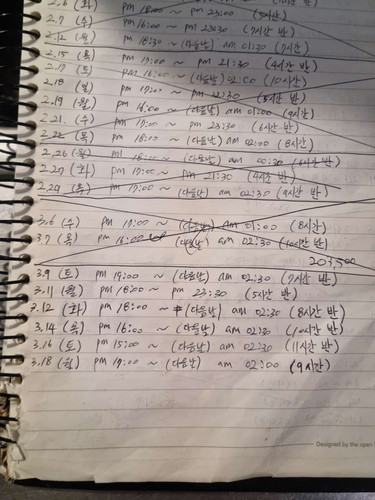 2.6 (화) pm 18:00 ~ pm 23:00 (5시간)
2.7 (수) pm 16:00 ~ pm 23:30 (7시간 반)
2.12 (월) pm 18:30 ~ (다음날) am 01:30 (7시간)
2.15 (목) pm 17:00 ~ pm 21:30 (4시간 반)
2.17 (토) pm 16:00 ~ (다음날) 02:00 (10시간)
2.18 (일) pm 17:00 ~ pm 22:30 (5시간 반)
2.19 (월) pm 16:00 ~ (다음날) am 01:00 (9시간)
2.21 (수) pm 17:00 ~ pm 23:30 (6시간 반)
2.22 (목) pm 18:00 ~ (다음날) am 02:00 (8시간)
2.26 (월) pm 18:00 ~ (다음날) am 00:30 (6시간 반)
2.27 (화) pm 17:00 ~ pm 21:30 (4시간 반)
2.29 (목) pm 17:00 ~ (다음날) am 02:30 (9시간 반)
3.6 (수) pm 17:00 ~ (다음날) am 01:00 (8시간)
3.7 (목) pm 16:00 ~ (다음날) am 02:30 (10시간 반)
203,500
3.9 (토) pm 19:00 ~ (다음날) am 02:30 (7시간 반)
3.11 (월) pm 18:00 ~ pm 23:30 (5시간 반)
3.12 (화) pm 18:00 ~ (다음날) am 02:30 (8시간 반)
3.14 (목) pm 16:00 ~ (다음날) am 02:30 (10시간 반)
3.16 (토) pm 15:00 ~ (다음날) am 02:30 (11시간 반)
3.18 (월) pm 17:00 ~ (다음날) am 02:00 (9시간)
Designed by the open